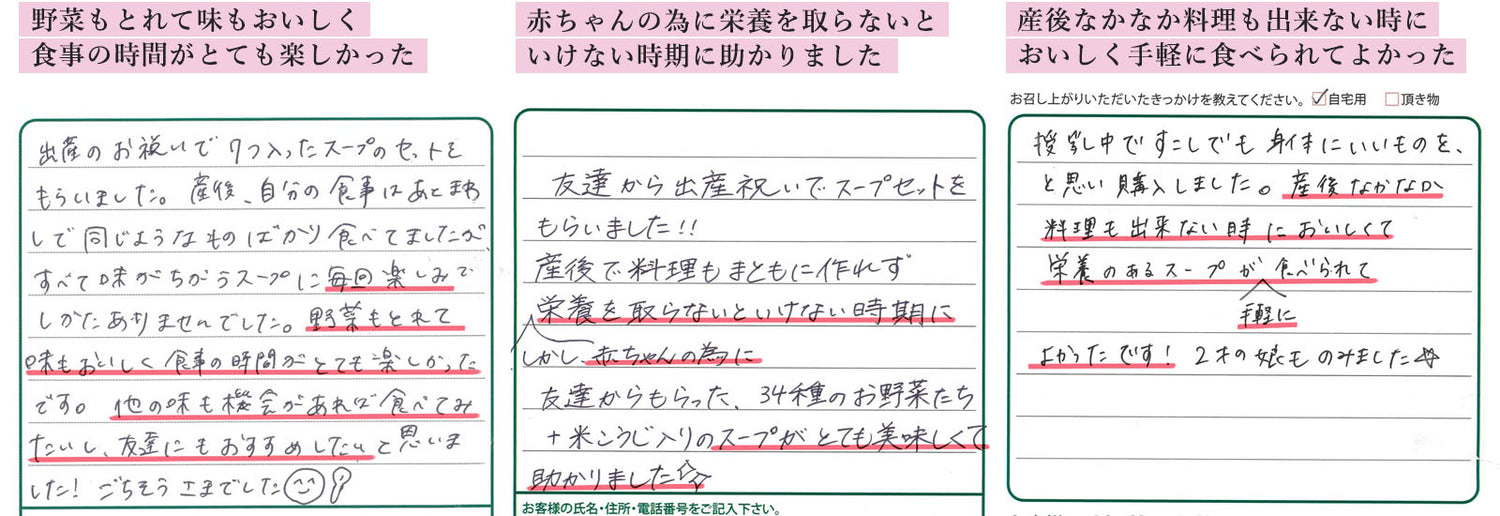 野菜もとれて味もおいしく
食事の時間がとても楽しかった
出産のお祝いで7つ入ったスープのセットを
もらいました。産後、自分の食事はあとまわ
しで同じようなものばかり食べてましたが、
すべて味がちがうスープに毎回楽しみで
しかたありませんでした。野菜もとれて
味もおいしく食事の時間がとても楽しかった
です。他の味も機会があれば食べてみ
たいし、友達にもおすすめしたいと思いま
した!ごちそうさまでした
赤ちゃんの為に栄養を取らないと
いけない時期に助かりました
友達から出産祝いでスープセットを
もらいました!!
産後で料理もまともに作れず
栄養を取らないといけない時期に
しかし、赤ちゃんの為に
友達からもらった、34種のお野菜たち
+米こうじ入りのスープがとても美味しくて
助かりました☆
お客様の氏名・住所・電話番号をご記入下さい。
産後なかなか料理も出来ない時に
おいしく手軽に食べられてよかった
お召し上がりいただいたきっかけを教えてください。 ☑自宅用 □頂き物
授乳中ですこしでも身体にいいものを、
と思い購入しました。産後なかなか
料理も出来ない時においしくて
栄養のあるスープが食べられて
手軽に
よかったです!2才の娘ものみました